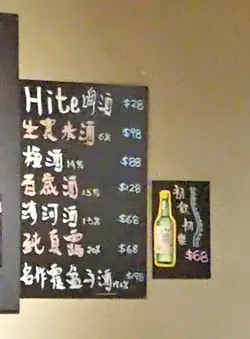 Hite啤酒 $28
生麦米酒 6% $98
檀酒 14% $88
百歲酒 13% $128
清河酒 13% $68
純真露 20% $68
名作覆盆子酒 $198
初飲初樂
$68